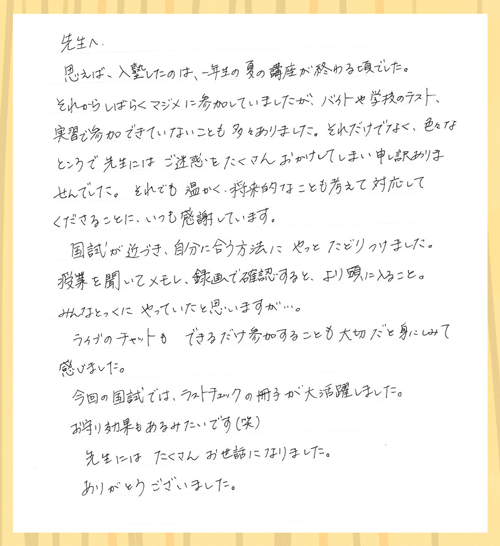 先生へ.
思えば、入塾したのは、一年生の夏の講座が終わる頃でした。
それからしばらくマジメに参加していましたが、バイトや学校のテスト、
実習で参加できていないことも多々ありました。それだけでなく、色々な
ところで先生には ご迷惑をたくさんおかけしてしまい申し訳ありま
せんでした。それでも温かく、将来的なことも考えて対応して
くださることに、いつも感謝しています。
国試が近づき、自分に合う方法に やっと たどりつけました。
授業を聞いてメモし、録画で確認すると、より頭に入ること。
みんなとっくに やっていたと思いますが…。
ライブのチャットも できるだけ参加することも大切だと身にしみて
感じました。
今回の国試では、ラストチェックの冊子が大活躍しました。
お守り効果もあるみたいです(笑)
先生には たくさん お世話になりました。
ありがとうございました。